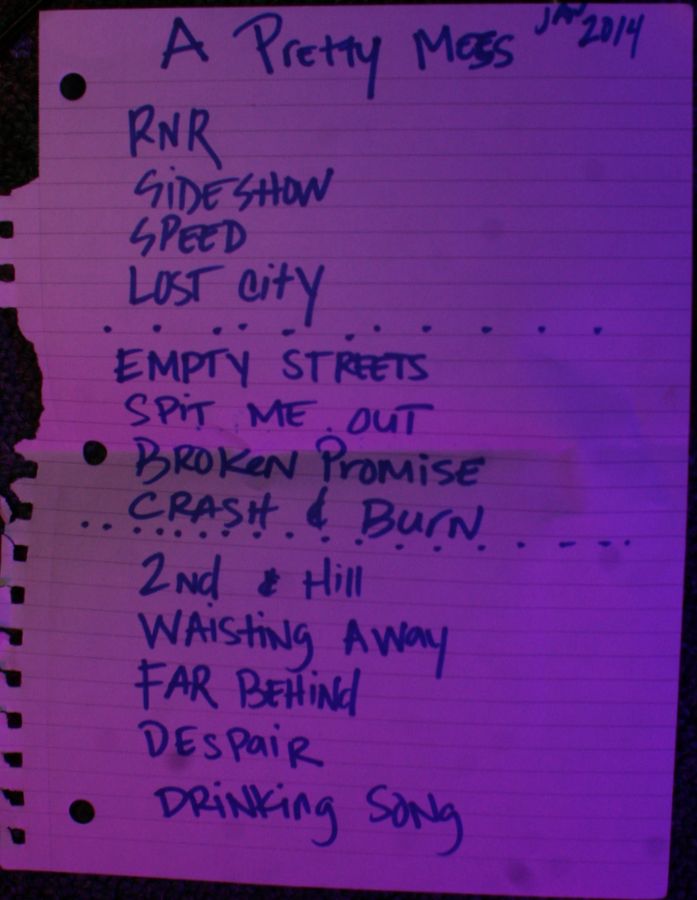 A Pretty Mess JAN 2014
RNR
SIDESHOW
SPEED
LOST City
EMPTY STREETS
SPIT ME OUT
BROKEN PROMISE
CRASH & BURN
2nd & Hill
WAISTING AWAY
FAR BEHIND
DESPAIR
DRINKING SONG